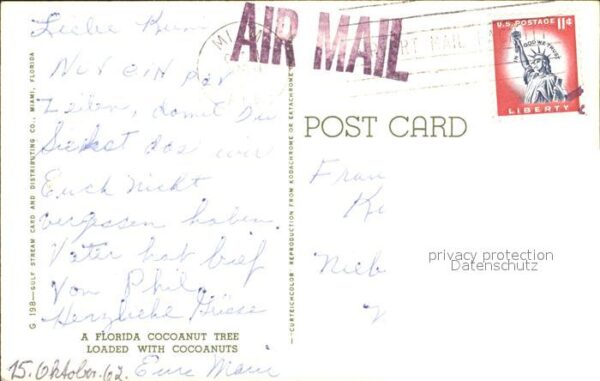 Liebe
AIR MAIL
U.S. POSTAGE 11¢
IN GOD WE TRUST
LIBERTY
MIAMI
Nur ein par
Zeilen, damit Du
Siehst das wir
Euch nicht
vergessen haben.
Vater hat brief
Von Phil.
Herzliche Grüsse
Eure
15. Oktober. 62.
POST CARD
Fran
Nieb
privacy protection
Datenschutz
A FLORIDA COCOANUT TREE
LOADED WITH COCOANUTS
G 198—GULF STREAM CARD AND DISTRIBUTING CO., MIAMI, FLORIDA
—CURTEICHCOLOR® REPRODUCTION FROM KODACHROME OR EKTACHROME